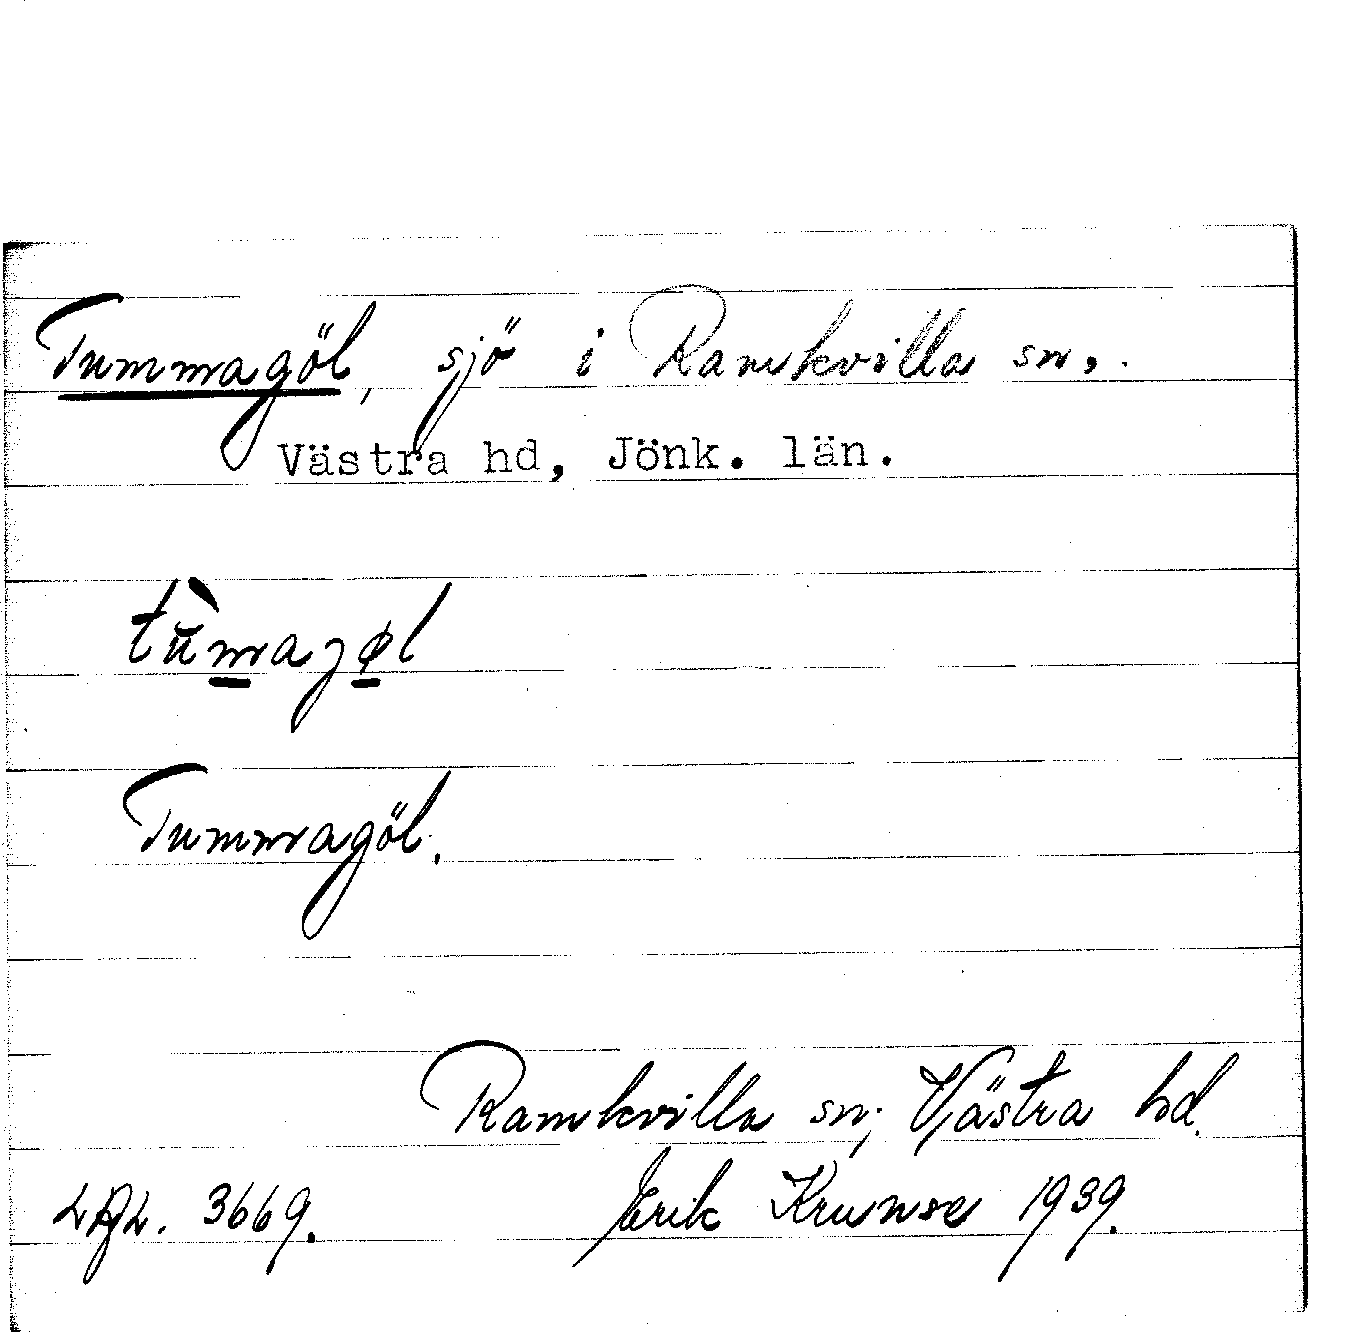 Tummagöl, sjö i Ramkvilla sn,.
Västra hd, Jönk. län.
tùmagøl
Tummagöl.
Ramkvilla sn, Västra hd.
3669. Erik 1939.